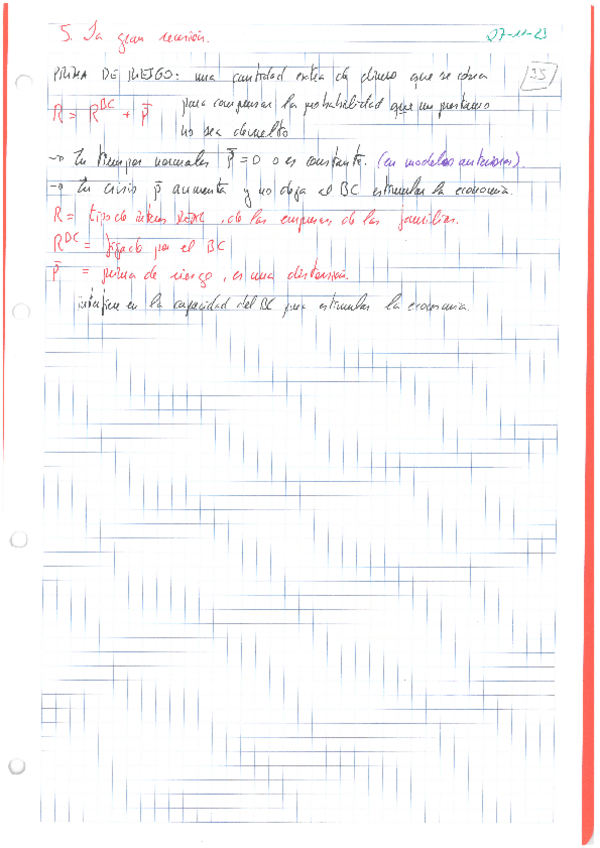 5. La gran recesión. 27-11-23
PRIMA DE RIESGO: una cantidad extra de dinero que se cobra 35
R = R^BC + p̄ para compensar la probabilidad que un prestamo
no sea devuelto
→ En tiempos normales p̄ = 0 o es constante. (en modelos anteriores).
→ En crisis p̄ aumenta y no deja al BC estimular la economia.
R = tipo de interes , de las empresas, de las familias.
R^BC = fijado por el BC
p̄ = prima de riesgo, es una distorsión.
interfiere en la capacidad del BC para estimular la economia.